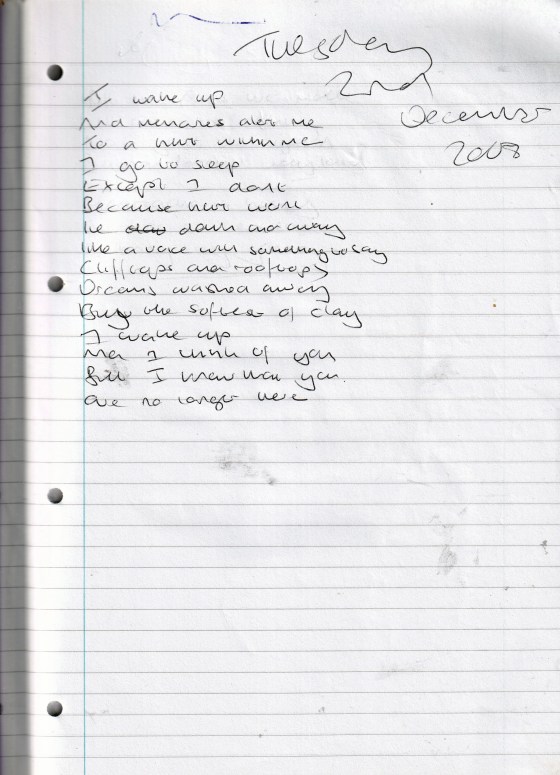 Tuesday
2nd
December
2008
I wake up
And memories alert me
To a hurt within me
I go to sleep
Except I dont
Because hurt wont
lie down and away
like a voice with something to say
Clifftops and rooftops
Dreams washed away
By the softest of clay
I wake up
And I think of you
But I know that you
are no longer here